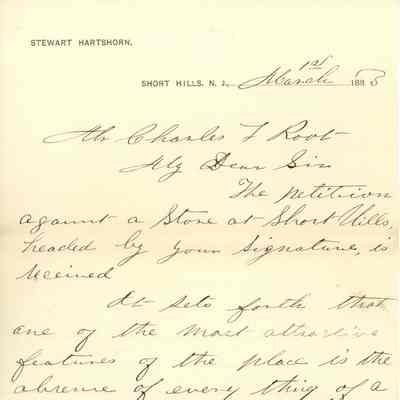 STEWART HARTSHORN.
SHORT HILLS. N. J., March 1st 1883
Mr Charles F Root
My Dear Sir
The petition
against a Store at Short Hills,
headed by your signature, is
received
It sets forth that
one of the most attractive
features of the place is the
absence of every thing of a